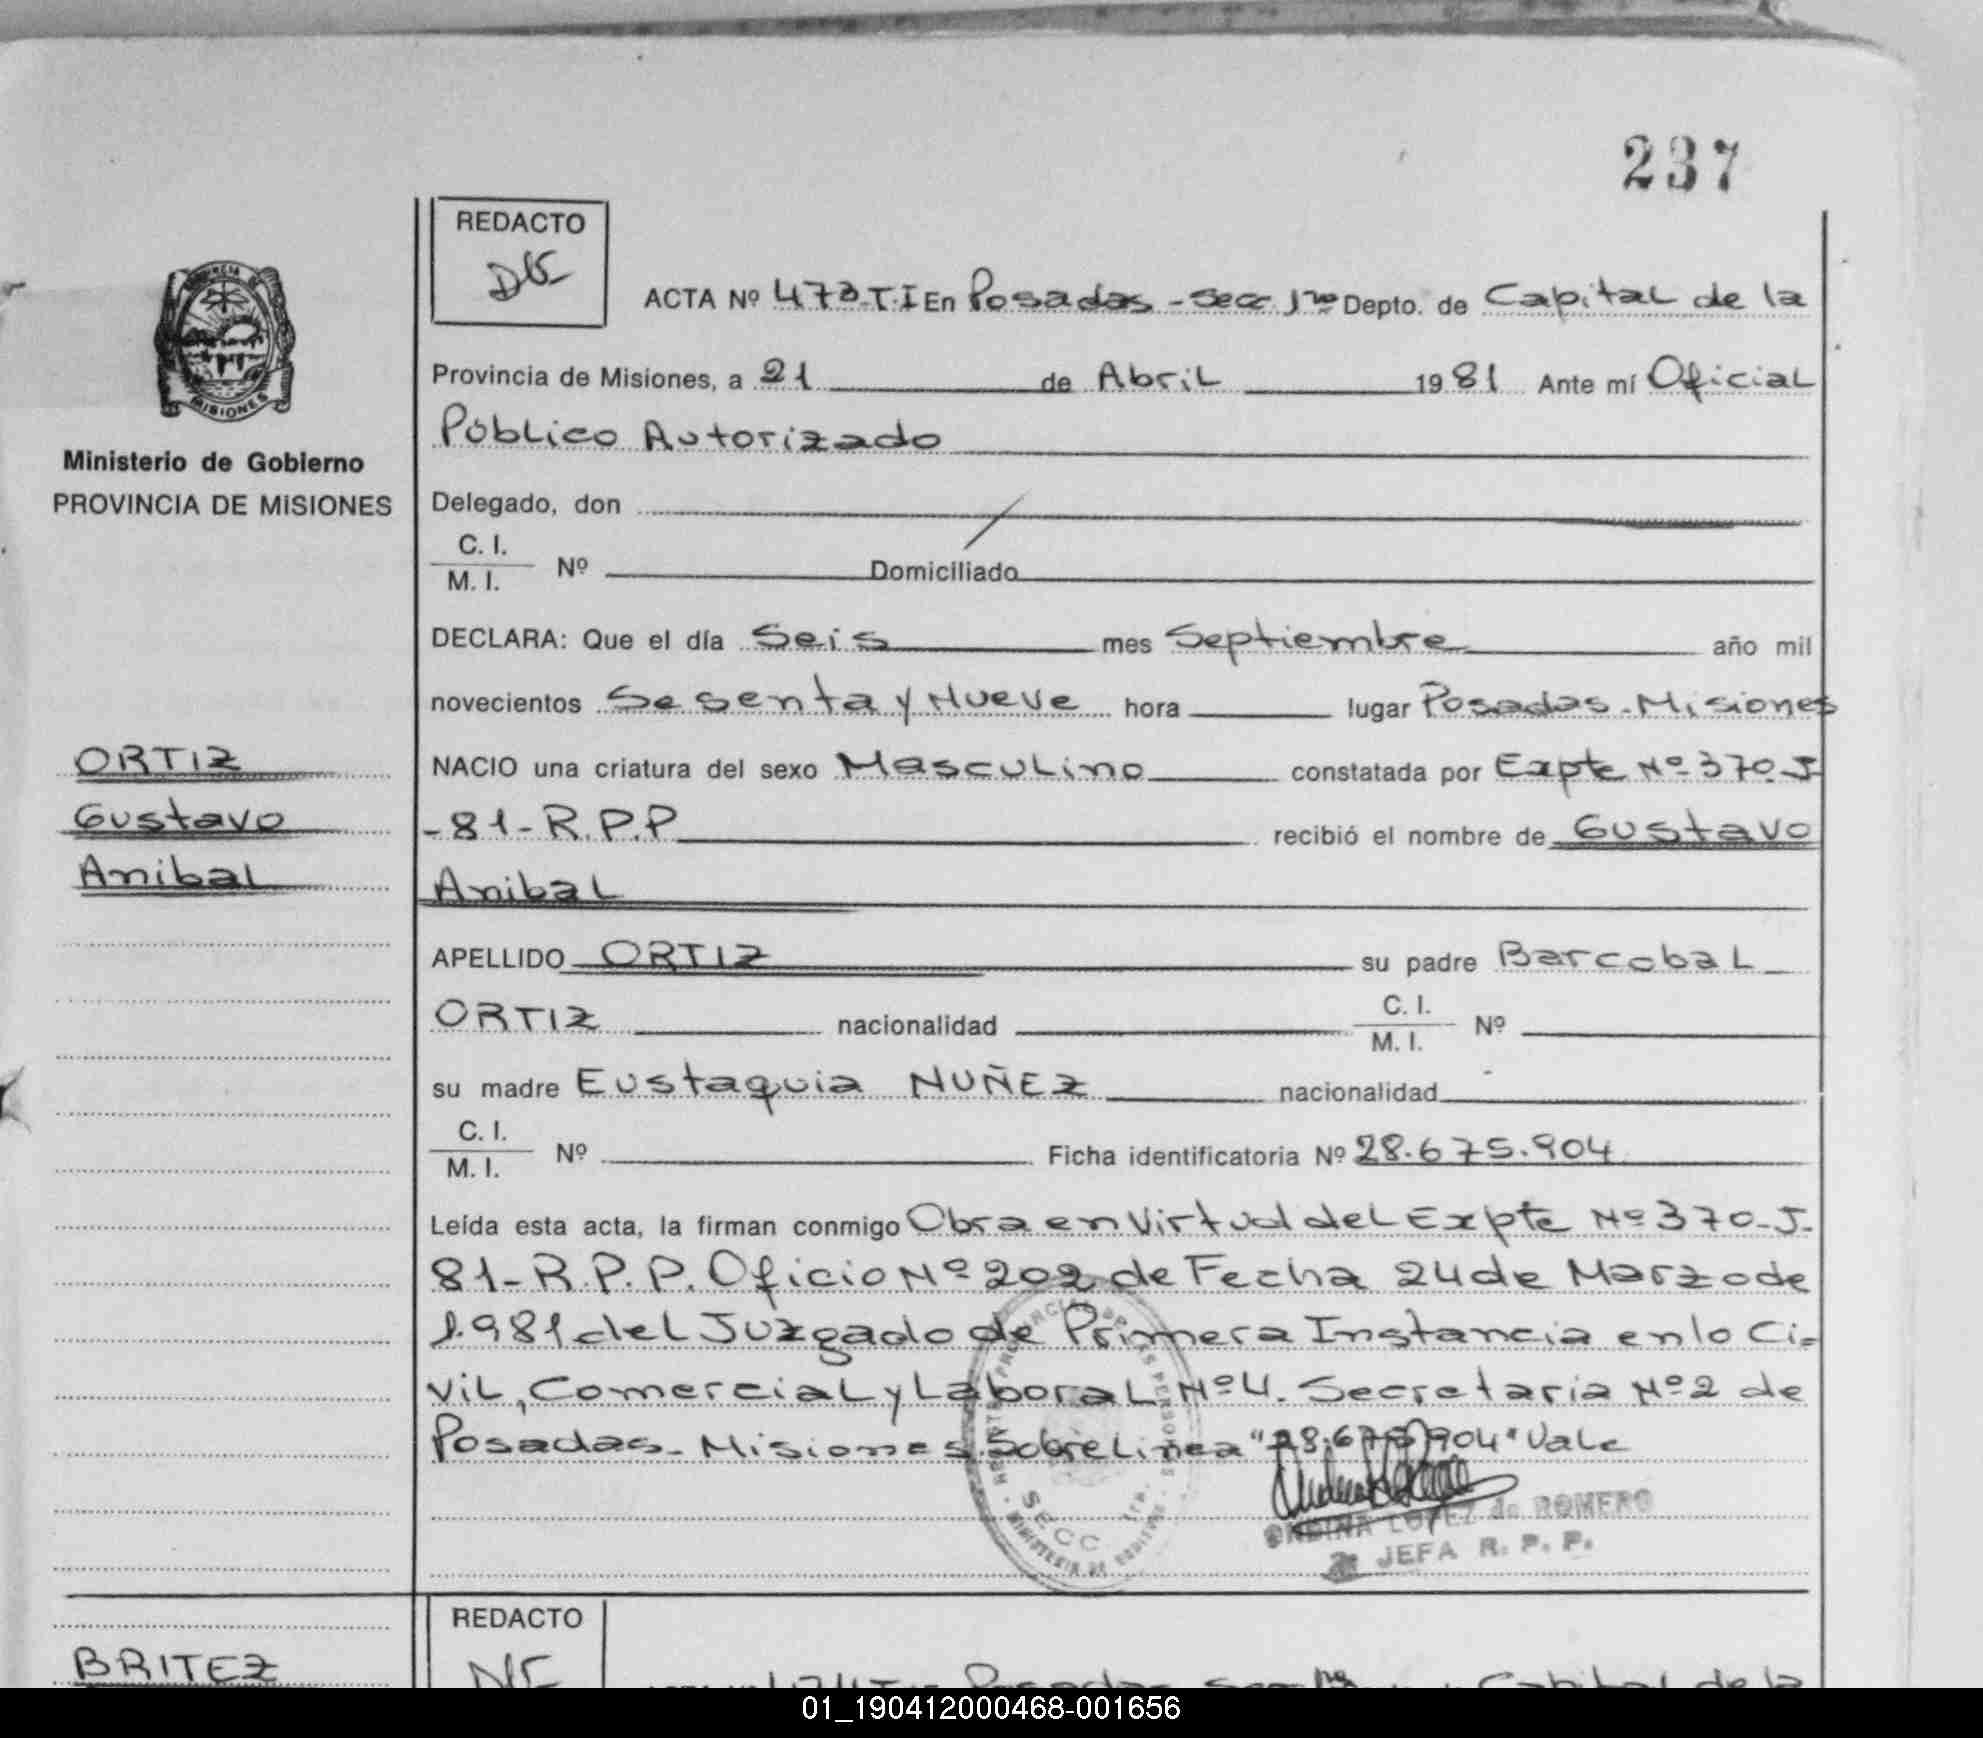 237
REDACTO
ACTA Nº 473-T.I En Posadas - Secc 1ra Depto. de Capital de la
PROVINCIA DE MISIONES
Provincia de Misiones, a 21 de Abril 1981 Ante mí Oficial
Público Autorizado
Ministerio de Gobierno
PROVINCIA DE MISIONES
Delegado, don
C. I.
M. I. Nº Domiciliado
DECLARA: Que el día Seis mes Septiembre año mil
novecientos Sesenta y Nueve hora lugar Posadas - Misiones
ORTIZ
Gustavo
Anibal
NACIO una criatura del sexo Masculino constatada por Expte Nº 370-J
-81-R.P.P recibió el nombre de Gustavo
Anibal
APELLIDO ORTIZ su padre Barcobal
ORTIZ nacionalidad C. I.
M. I. Nº
su madre Eustaquia NUÑEZ nacionalidad
C. I.
M. I. Nº Ficha identificatoria Nº 28.675.904
Leída esta acta, la firman conmigo Obra en Virtud del Expte Nº 370-J-
81-R.P.P. Oficio Nº 202 de Fecha 24 de Marzo de
1.981 del Juzgado de Primera Instancia en lo Ci=
vil, Comercial y Laboral Nº 4. Secretaria Nº 2 de
Posadas - Misiones. Sobre Linea "28.675.904" Vale
SECC 1ra.
ONDINA LOPEZ de ROMERO
JEFA R. P. P.
REDACTO
BRITEZ
01_190412000468-001656